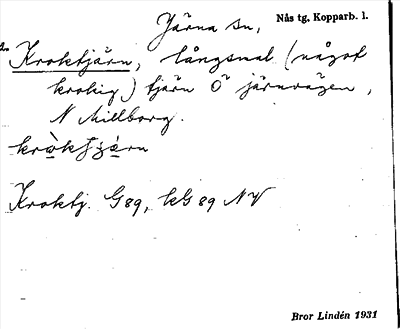 Järna sn, Nås tg, Kopparb. l.
Kroktjärn, långsmal (något
krokig) tjärn Ö järnvägen,
N Millborg.
Kroktj. G 89, kG 89 NV
Bror Lindén 1931